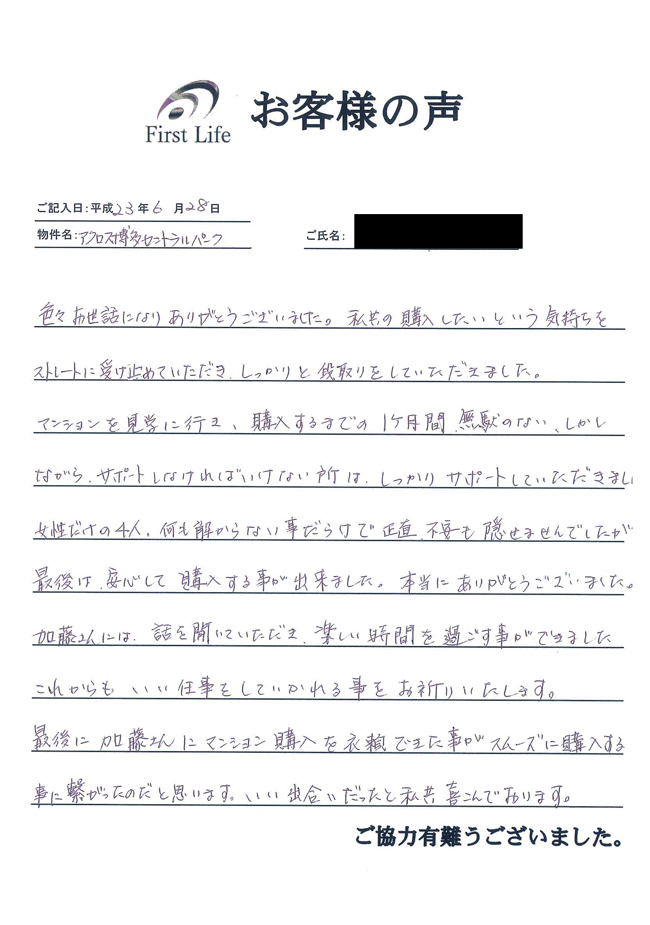 First Life
お客様の声
ご記入日:平成23年6月28日
物件名:アクロス博多セントラルパーク
ご氏名:
色々お世話になりありがとうございました。私共の購入したいという気持ちを
ストレートに受け止めていただき、しっかりと段取りをしていただきました。
マンションを見学に行き、購入するまでの1ケ月間、無駄のない、しかし
ながら、サポートしなければいけない所は、しっかりサポートしていただきまし
女性だけの4人、何も解からない事だらけで正直、不安も隠せませんでしたが
最後は、安心して購入する事が出来ました。本当にありがとうございました。
加藤さんには、話を聞いていただき、楽しい時間を過ごす事ができました
これからもいい仕事をしていかれる事をお祈りいたします。
最後に加藤さんにマンション購入を依頼できた事がスムーズに購入する
事に繋がったのだと思います。いい出合いだったと私共喜こんでおります。
ご協力有難うございました。